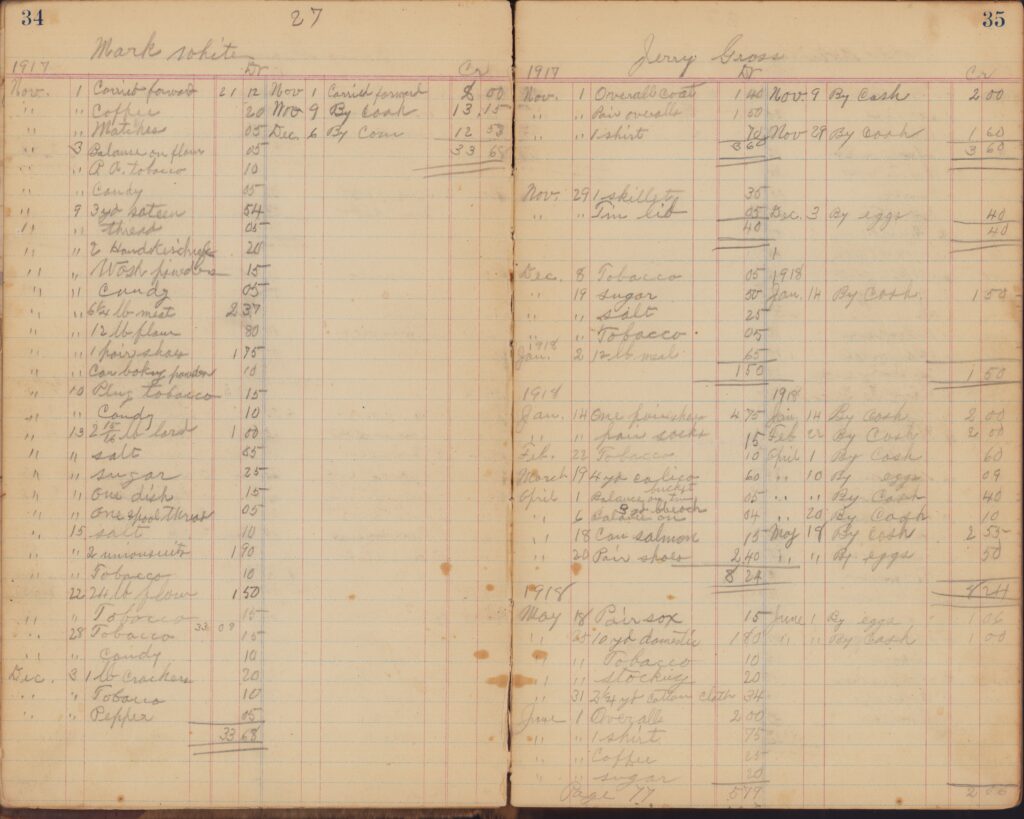 34
27
Mark White
1917
Dr
Cr
Nov. 1 Carried forward 21 12 Nov 1 Carried forward 8 00
" " Coffee 20 Nov 9 By Cash 13,15
" " Matches 05 Dec. 6 By Corn 12 53
" 3 Balance on flour 05 33 68
" " P. A. tobacco 10
" Candy 05
" 9 3 yd sateen 54
" " thread 05
" " 2 Handkirchiefs 20
" " Wash powders 15
" " Candy 05
" " 6¾ lb meat 2 37
" " 12 lb flour 80
" " 1 pair shoes 1 75
" " Can baking powder 10
" 10 Plug tobacco 15
" " Candy 10
" 13 2 15/16 lb lard 1 00
" " salt 05
" " sugar 25
" " One dish 15
" " One spool thread 05
" 15 salt 10
" " 2 unionsuits 1 90
" " Tobacco 10
" 22 24 lb flour 1 50
" Tobacco 15
33 09
" 28 Tobacco 15
" " Candy 10
Dec. 3 1 lb Crackers 20
" " Tobacco 10
" " Pepper 05
33 68
35
Jerry Gross
1917
Dr
Cr
Nov. 1 Overall coat 1 40 Nov. 9 By Cash 2 00
" " Pair overalls 1 50
" " 1 shirt 70 Nov 29 By Cash 1 60
3 60 3 60
Nov. 29 1 skillet 35
" " Tin lid 05 Dec. 3 By eggs 40
40 40
Dec. 8 Tobacco 05 1918
" 19 sugar 50 Jan. 14 By Cash 1 50
" " salt 25
" " Tobacco 05
1918
Jan. 2 12 lb meal 65
1 50 1 50
1918 1918
Jan. 14 One pair shoes 4 75 Jan. 14 By Cash 2 00
" " pair socks 15 Feb 22 By Cash 2 00
Feb. 22 Tobacco 10 April 1 By Cash 60
March 19 4 yd calico 60 " 10 By eggs 09
April 1 Balance on tin bucket 05 " " By Cash 40
" 6 Balance on 04 " 20 By Cash 10
" 18 Can salmon 15 May 18 By Cash 2 55
" 20 Pair shoes 2 40 " " By eggs 50
8 24 8 24
1918
May 18 Pair sox 15 June 1 By eggs 1 06
" 25 10 yd domestic 1 80 " " By Cash 1 00
" " Tobacco 10
" " stocking 20
" 31 2¾ yd Cotton cloth 34
June 1 Overalls 2 00
" " 1 shirt 75
" " Coffee 25
" " sugar 20
Page 77 5 79 2 06